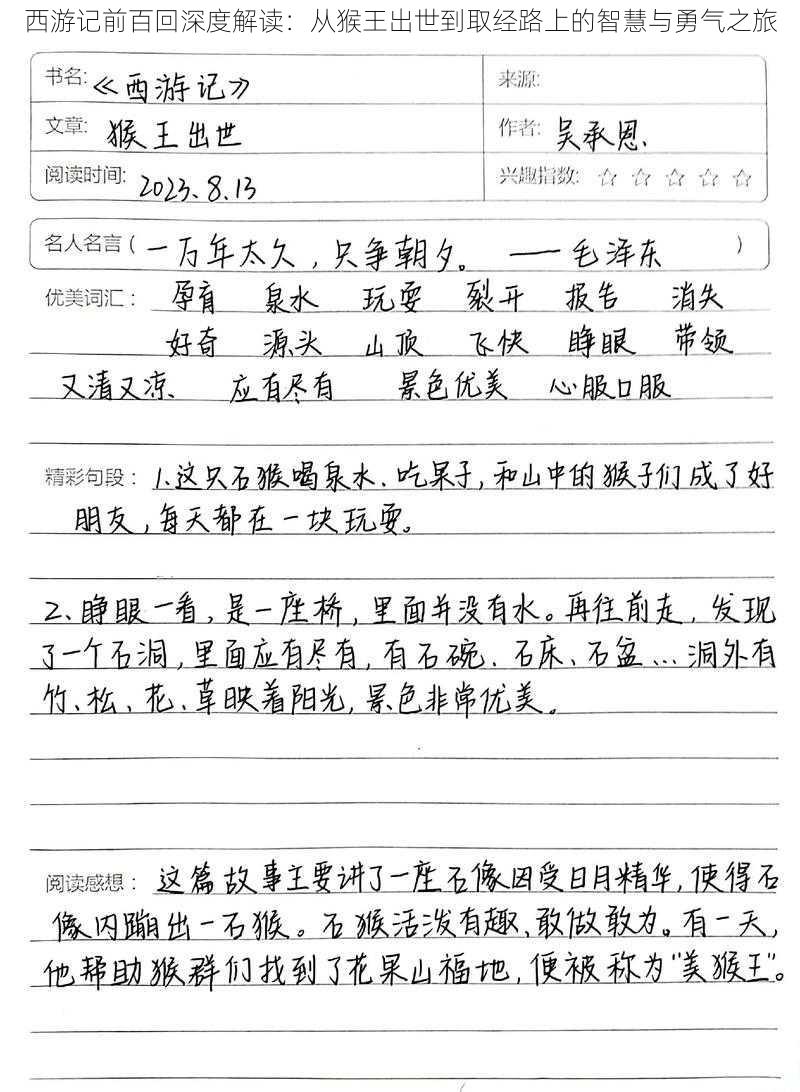 西游记前百回深度解读：从猴王出世到取经路上的智慧与勇气之旅
书名:《西游记》 来源:
文章: 猴王出世 作者: 吴承恩.
阅读时间: 2023.8.13 兴趣指数: ☆ ☆ ☆ ☆ ☆
名人名言（一万年太久，只争朝夕。——毛泽东）
优美词汇： 孕育 泉水 玩耍 裂开 报告 消失
好奇 源头 山顶 飞快 睁眼 带领
又清又凉 应有尽有 景色优美 心服口服
精彩句段： 1.这只石猴喝泉水、吃果子，和山中的猴子们成了好
朋友，每天都在一块玩耍。
2、睁眼一看，是一座桥，里面并没有水。再往前走，发现
了一个石洞，里面应有尽有，有石碗、石床、石盆…洞外有
竹、松、花、草映着阳光，景色非常优美。
阅读感想： 这篇故事主要讲了一座石像因受日月精华，使得石
像内蹦出一石猴。石猴活泼有趣、敢做敢为。有一天，
他帮助猴群们找到了花果山福地，便被称为"美猴王"。